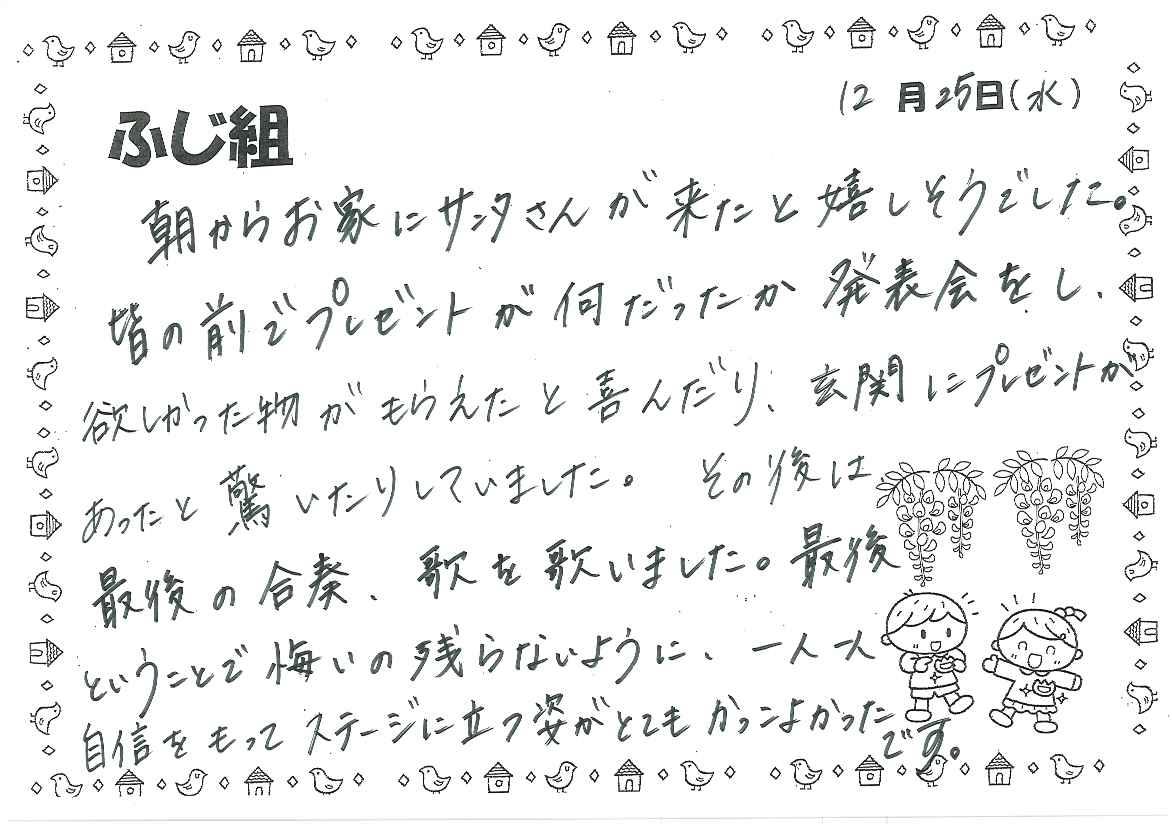 12月25日(水)
ふじ組
朝からお家にサンタさんが来たと嬉しそうでした。
皆の前でプレゼントが何だったか発表会をし、
欲しかった物がもらえたと喜んだり、玄関にプレゼントが
あったと驚いたりしていました。その後は
最後の合奏、歌を歌いました。最後
ということで悔いの残らないように、一人一人
自信をもってステージに立つ姿がとてもかっこよかった
です。